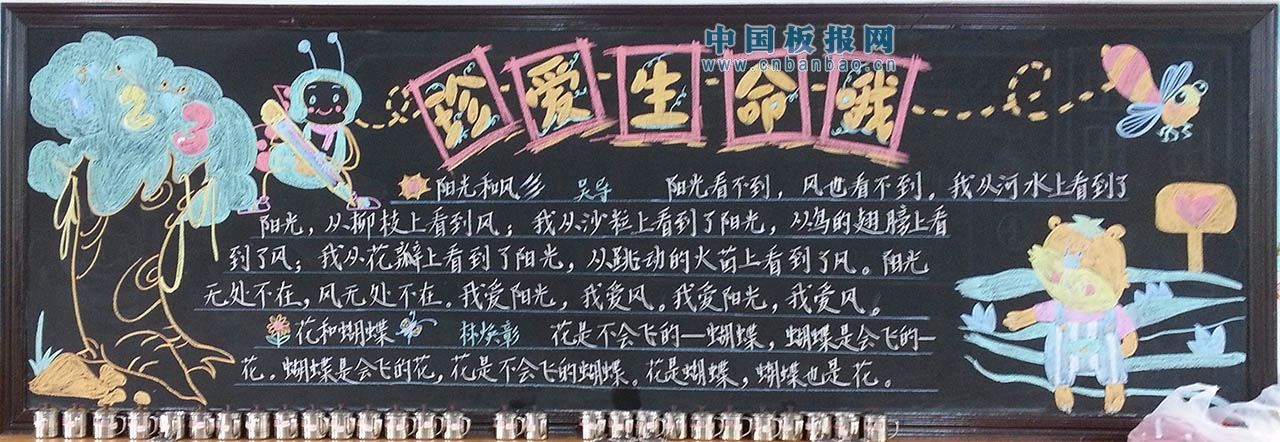 中国板报网
www.cnbanbao.cn
珍爱生命哦
1 2 3
阳光和风 吴导 阳光看不到，风也看不到。我从河水上看到了
阳光，从柳枝上看到风；我从沙粒上看到了阳光，从鸟的翅膀上看
到了风；我从花瓣上看到了阳光，从跳动的火苗上看到了风。阳光
无处不在，风无处不在。我爱阳光，我爱风。我爱阳光，我爱风。
花和蝴蝶 林焕彰 花是不会飞的一蝴蝶，蝴蝶是会飞的一
花。蝴蝶是会飞的花，花是不会飞的蝴蝶。花是蝴蝶，蝴蝶也是花。